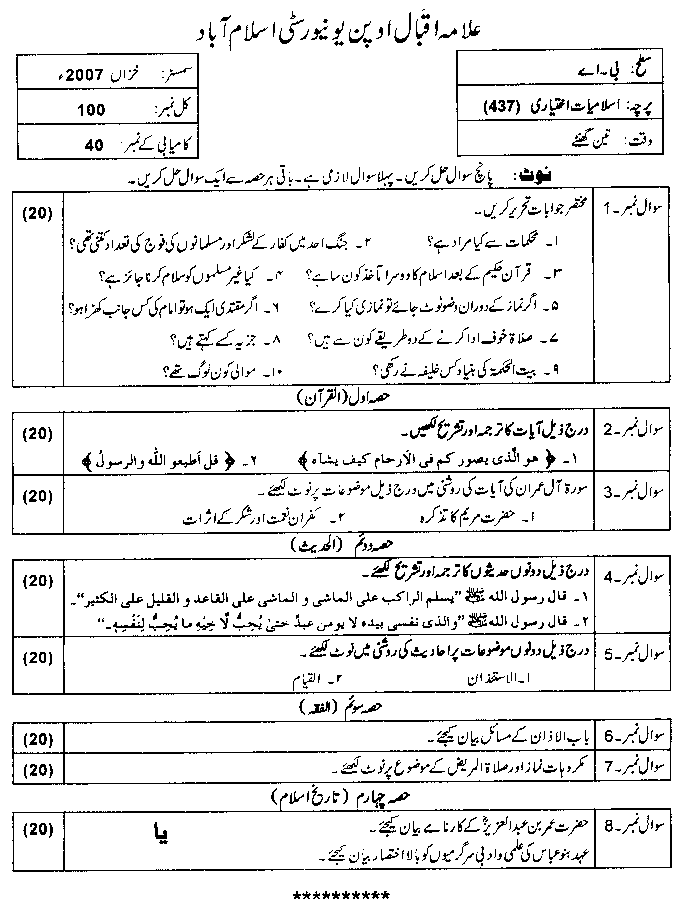 علامہ اقبال اوپن یونیورسٹی اسلام آباد
سطح: بی۔اے
سمسٹر: خزاں 2007ء
پرچہ: اسلامیات اختیاری (437)
کل نمبر: 100
وقت: تین گھنٹے
کامیابی کے نمبر: 40
نوٹ: پانچ سوال حل کریں۔ پہلا سوال لازمی ہے۔ باقی ہر حصہ سے ایک سوال حل کریں۔
سوال نمبر۔1 مختصر جوابات تحریر کریں۔ (20)
۱۔ محکمات سے کیا مراد ہے؟ ۲۔ جنگ احد میں کفار کے لشکر اور مسلمانوں کی فوج کی تعداد کتنی تھی؟
۳۔ قرآن حکیم کے بعد اسلام کا دوسرا مآخذ کون سا ہے؟ ۴۔ کیا غیر مسلموں کو سلام کرنا جائز ہے؟
۵۔ اگر نماز کے دوران وضو ٹوٹ جائے تو نمازی کیا کرے؟ ۶۔ اگر مقتدی ایک ہو تو امام کی کس جانب کھڑا ہو؟
۷۔ صلاۃ خوف ادا کرنے کے دو طریقے کون سے ہیں؟ ۸۔ جزیہ کسے کہتے ہیں؟
۹۔ بیت الحکمۃ کی بنیاد کس خلیفہ نے رکھی؟ ۱۰۔ موالی کون لوگ تھے؟
حصہ اول (القرآن)
سوال نمبر۔2 درج ذیل آیات کا ترجمہ اور تشریح لکھیں۔ (20)
۱۔ ﴿ هو الّذی یصور کم فی الارحام کیف یشآء ﴾ ۲۔ ﴿ قل اطیعو اللّٰه والرسولُ ﴾
سوال نمبر۔3 سورۃ آل عمران کی آیات کی روشنی میں درج ذیل موضوعات پر نوٹ لکھیئے۔ (20)
۱۔ حضرت مریم کا تذکرہ ۲۔ کفران نعمت اور شکر کے اثرات
حصہ دوئم (الحدیث)
سوال نمبر۔4 درج ذیل دونوں حدیثوں کا ترجمہ اور تشریح لکھئے۔ (20)
۱۔ قال رسول اللہ ﷺ ”یسلم الراکب علی الماشی و الماشی علی القاعد و القلیل علی الکثیر“۔
۲۔ قال رسول اللہ ﷺ ”والذی نفسی بیده لا یومن عبدٌ حتیٰ یُحِبُّ لَّا خِیْهِ ما یُحِبُّ لِنَفْسِهٖ۔“
سوال نمبر۔5 درج ذیل دونوں موضوعات پر احادیث کی روشنی میں نوٹ لکھیئے۔ (20)
۱۔ الاستئذان ۲۔ القیام
حصہ سوئم (الفقہ)
سوال نمبر۔6 باب الاذان کے مسائل بیان کیجئے۔ (20)
سوال نمبر۔7 مکروہات نماز اور صلاۃ المریض کے موضوع پر نوٹ لکھیئے۔ (20)
حصہ چہارم (تاریخ اسلام)
سوال نمبر۔8 حضرت عمر بن عبدالعزیزؒ کے کارنامے بیان کیجئے۔ یا (20)
عہد بنو عباس کی علمی و ادبی سرگرمیوں کو بالا اختصار بیان کیجئے۔
**********